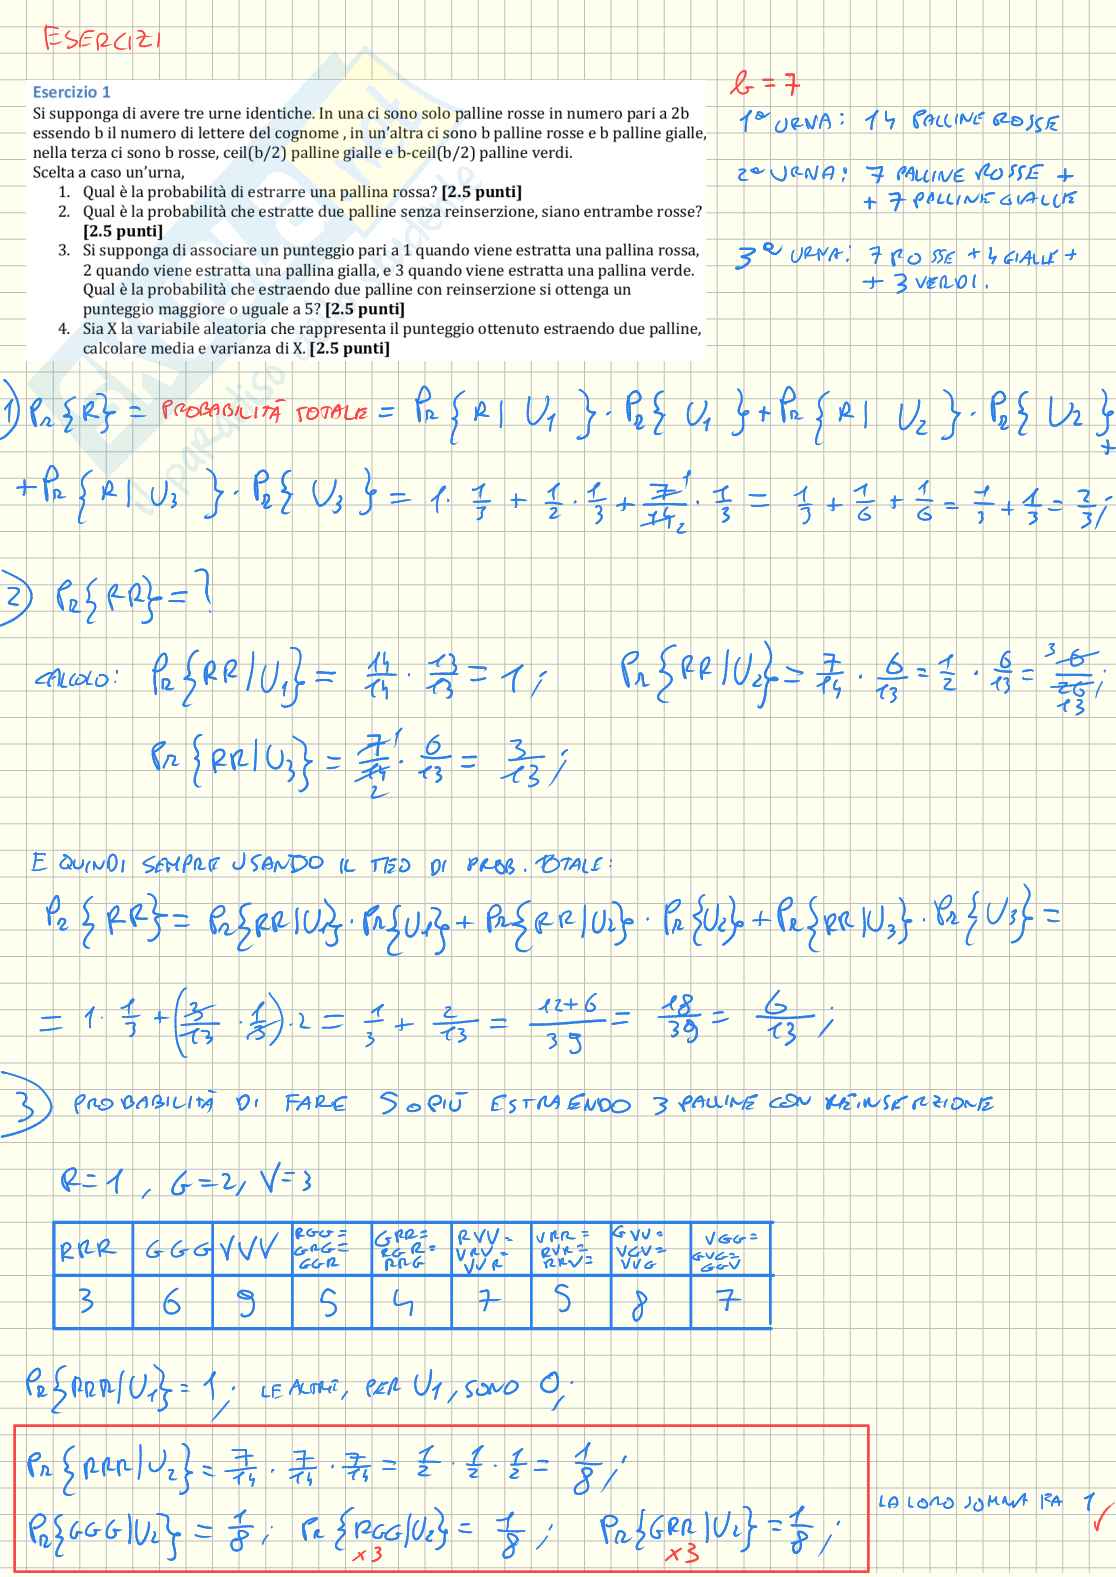 ESERCIZI
Esercizio 1
Si supponga di avere tre urne identiche. In una ci sono solo palline rosse in numero pari a 2b
essendo b il numero di lettere del cognome , in un'altra ci sono b palline rosse e b palline gialle,
nella terza ci sono b rosse, ceil(b/2) palline gialle e b-ceil(b/2) palline verdi.
Scelta a caso un'urna,
1. Qual è la probabilità di estrarre una pallina rossa? [2.5 punti]
2. Qual è la probabilità che estratte due palline senza reinserzione, siano entrambe rosse?
[2.5 punti]
3. Si supponga di associare un punteggio pari a 1 quando viene estratta una pallina rossa,
2 quando viene estratta una pallina gialla, e 3 quando viene estratta una pallina verde.
Qual è la probabilità che estraendo due palline con reinserzione si ottenga un
punteggio maggiore o uguale a 5? [2.5 punti]
4. Sia X la variabile aleatoria che rappresenta il punteggio ottenuto estraendo due palline,
calcolare media e varianza di X. [2.5 punti]
b = 7
1ª URNA: 14 PALLINE ROSSE
2ª URNA: 7 PALLINE ROSSE +
+ 7 PALLINE GIALLE
3ª URNA: 7 ROSSE + 4 GIALLE +
+ 3 VERDI.
1) Pr{R} = PROBABILITÀ TOTALE = Pr{R|U1}·Pr{U1}+Pr{R|U2}·Pr{U2}+
+Pr{R|U3}·Pr{U3} = 1·1/3 + 1/2·1/3 + 7/14·1/3 = 1/3 + 1/6 + 1/6 = 1/3 + 1/3 = 2/3;
2) Pr{RR} = ?
CALCOLO: Pr{RR|U1} = 14/14 · 13/13 = 1; Pr{RR|U2} = 7/14 · 6/13 = 1/2 · 6/13 = 6/26 3/13;
Pr{RR|U3} = 7/14 1/2 · 6/13 = 3/13;
E QUINDI SEMPRE USANDO IL TEO DI PROB. TOTALE:
Pr{RR} = Pr{RR|U1}·Pr{U1}+Pr{RR|U2}·Pr{U2}+Pr{RR|U3}·Pr{U3} =
= 1·1/3 + (3/13 · 1/3)·2 = 1/3 + 2/13 = 12+6/39 = 18/39 = 6/13;
3) PROBABILITÀ DI FARE 5 O PIÙ ESTRAENDO 3 PALLINE CON REINSERZIONE
R=1, G=2, V=3
RRR GGG VVV RGG= GRG= GGR GRR= RGR= RRG RVV= VRV= VVR VRR= RVR= RRV= GVV= VGV= VVG VGG= GVG= GGV
3 6 9 5 4 7 5 8 7
Pr{RRR|U1} = 1; LE ALTRE, PER U1, SONO 0;
Pr{RRR|U2} = 7/14 · 7/14 · 7/14 = 1/2 · 1/2 · 1/2 = 1/8;
LA LORO SOMMA FA 1 ✓
Pr{GGG|U2} = 1/8; Pr{RGG|U2} = 1/8; Pr{GRR|U2} = 1/8;
x3 x3